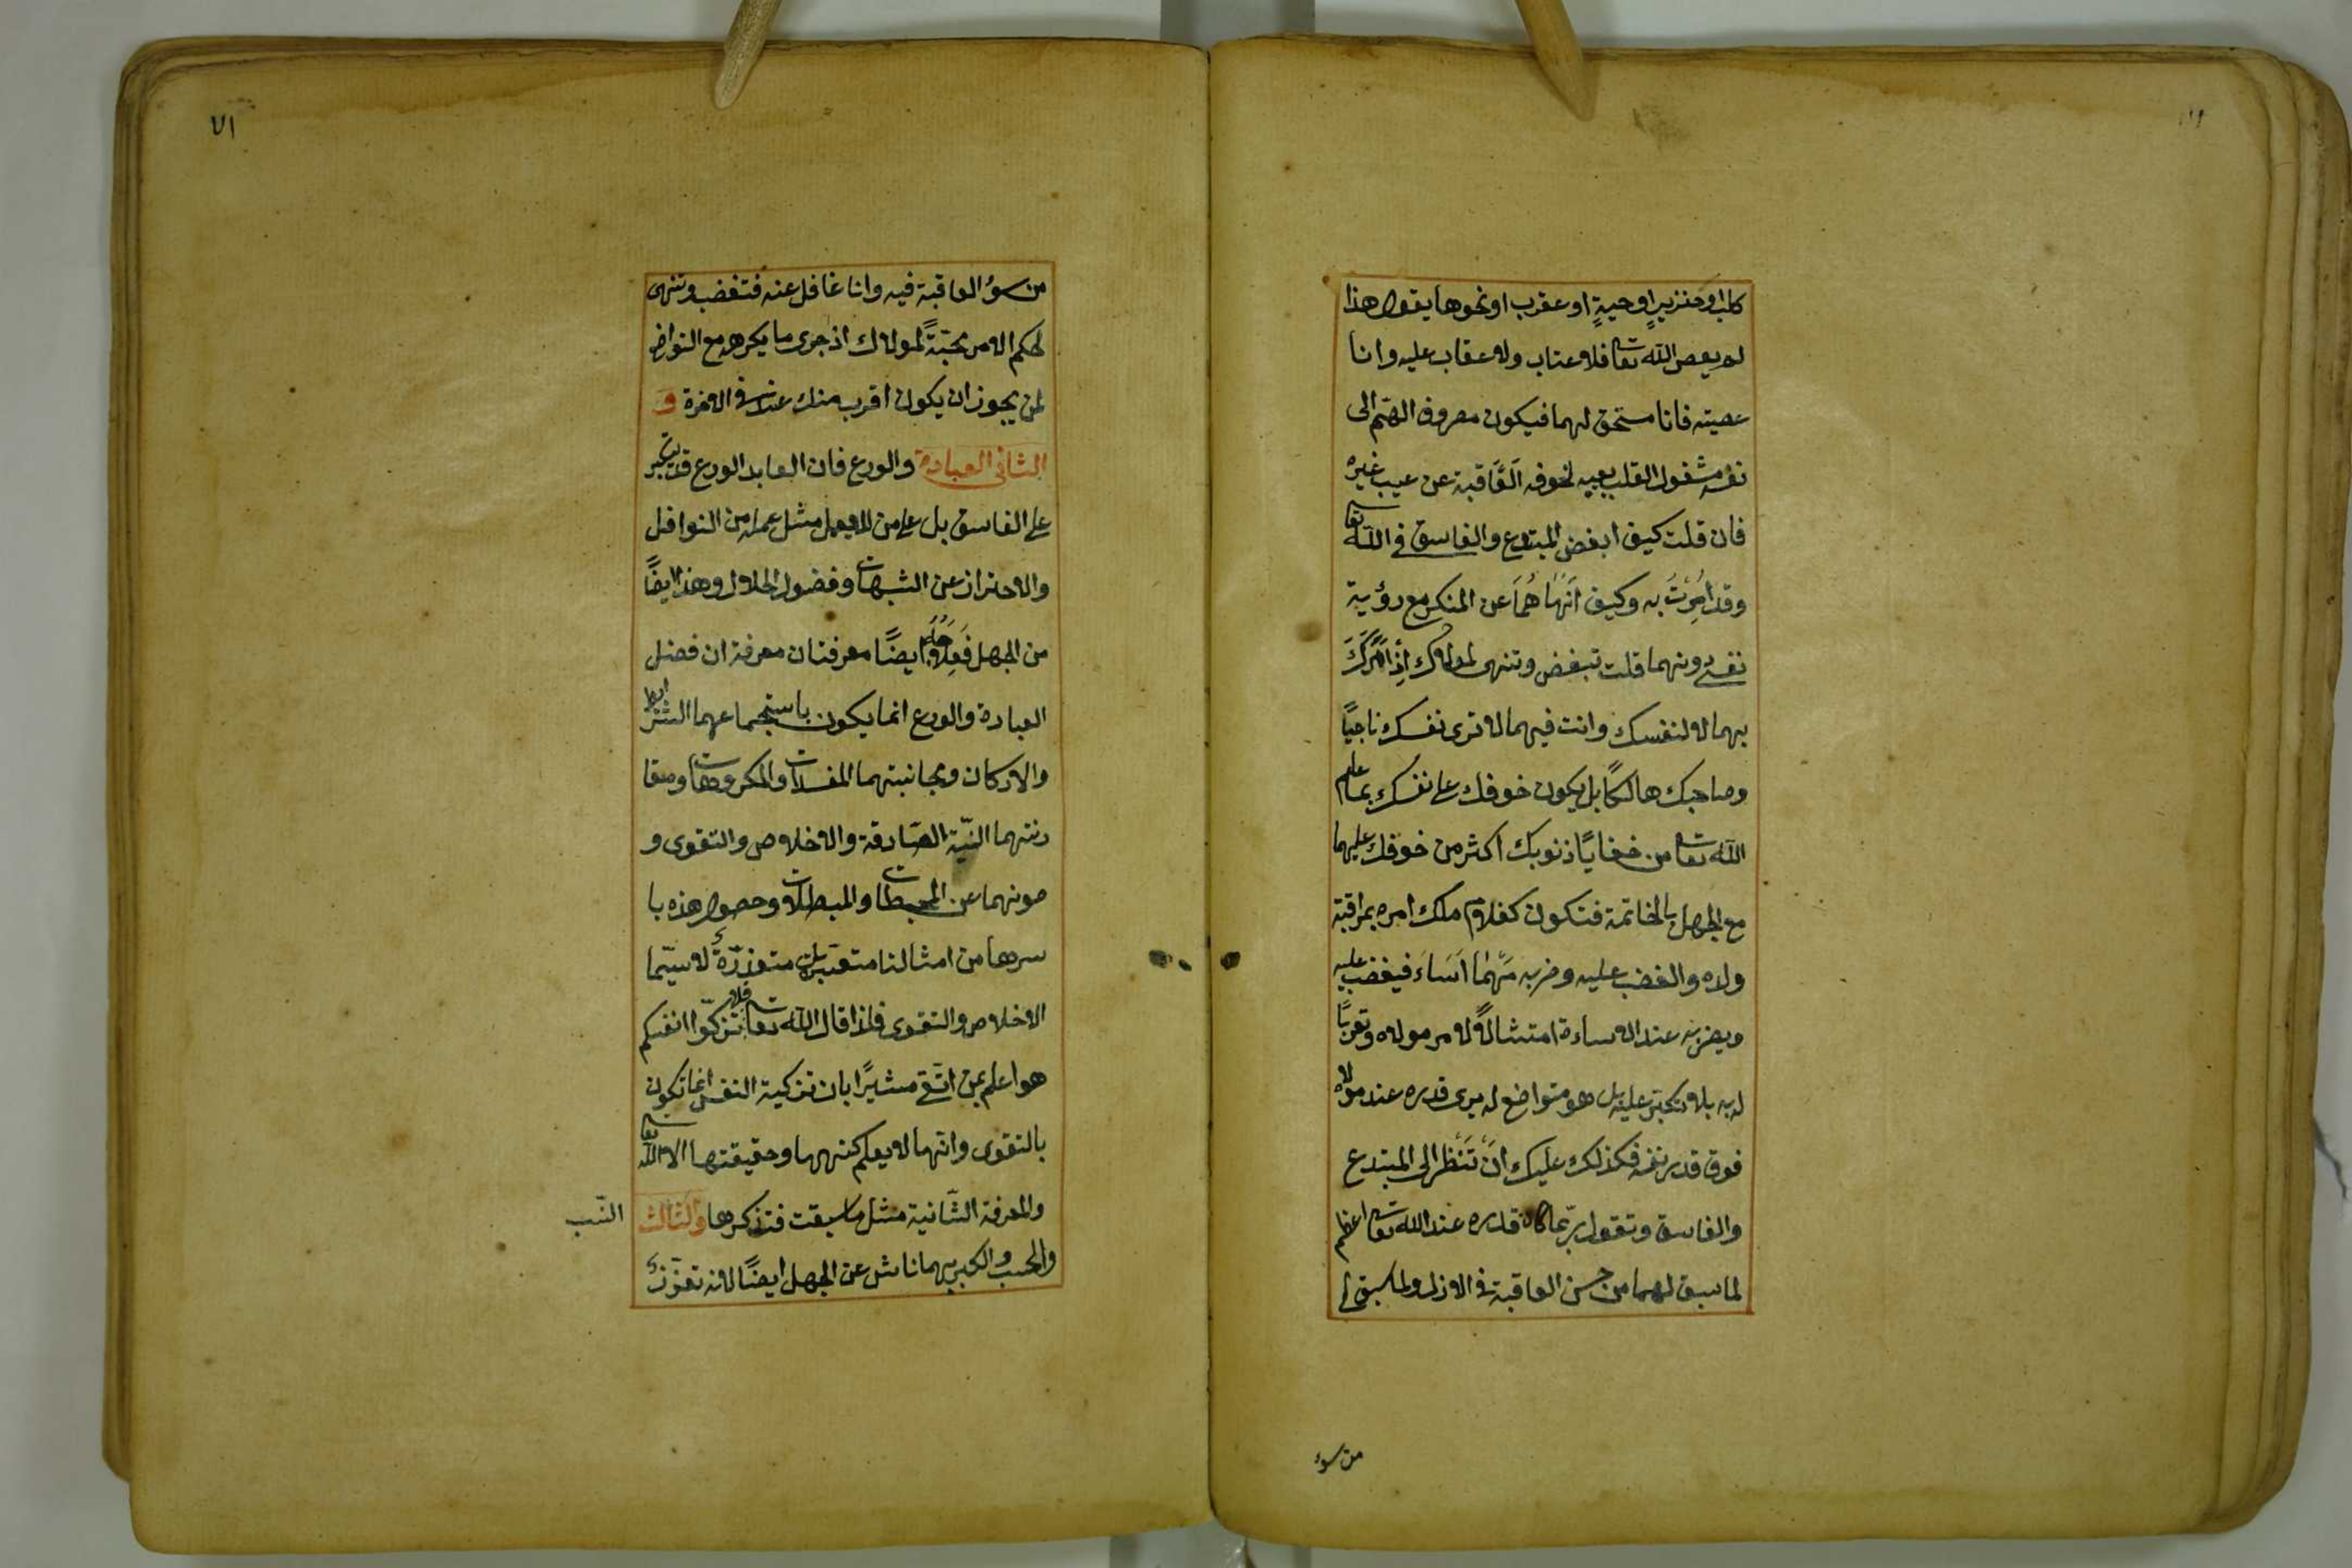 كلبا او خنزير او حيةٍ او عقرب او نحوها يقول هذا
لم يعص الله تعا فلا عتاب ولا عقاب عليه وانا
عصيته فانا مستحق لهما فيكون مصروف الهمّ الى
نفسه مشغول القلب بعيبه لخوفه العَاقبة عن عيب غيره
فان قلت كيف ابغض المبتدع والفاسق فى الله تعا
وقد اُمِرْتُ به وكيف اَنهَاهُمَا عن المنكر مع رؤية
نفسى دونهما قلت تبغض وتنهى لمولاك اِذ اَمَرَكَ
بهما لا لنفسك وانت فيهما لا ترى نفسك ناجيًا
وصاحبك هالكًا بل يكون خوفك على نفسك بما علم
الله تعا من خفايًا ذنوبك اكثر من خوفك عليهما
مع الجهل بالخاتمة فتكون كغلام ملك امره بمراقبة
ولده والغضب عليه وضربه مَهْمَا اَسَاءَ فيغضب عليه
ويضربه عند الاساءة امتثالًا لامر مولاه وتقربًا
له به بلا تكبّر عليه بل هو متواضع له يرى قدره عند مولاه
فوق قدر نفسه فكذلك عليك انْ تَنْظُر الى المبتدع
والفاسق وتقول ربّما كان قدره عند الله تعا اعظم
لما سبق لهما من حسن العاقبة فى الازل ولما سبق لى
من سوء
٧١
من سوء العاقبة فيه وانا غافل عنه فتغضب وتنهى
لحكم الامر محبّةً لمولاك اذ جرى ما يكرهه مع التواضع
لمن يجوز ان يكون اقرب منك عنده فى الاخرة و
الثانى العبادة والورع فان العابد الورع قد يتكبر
على الفاسق بل على من لا يعمل مثل عمله من النوافل
والاحتراز عن الشبهات وفضول الحلال وهذا ايضًا
من الجهل فَعِلَاجُهُ ايضًا معرفتان معرفة ان فضل
العبادة والورع انما يكون باستجماعهما الشرائط
والاركان ومجانبتهما المفسدات والمكروهات ومقا
رنتهما النيّة الصّادقة والاخلاص والتقوى و
صونهما عن المحبطات والمبطلات وحصول هذه با
سرها من امثالنا متعسّرة بل متعذرّة لا سيّما
الاخلاص والتقوى فلذا قال الله تعا فلا تزكّوا انفسكم
هو اعلم بمن اتّقى مشيرًا بان تزكية النفس انما تكون
بالتقوى وانّهما لا يعلم كنههما وحقيقتهما الا الله تعا
والمعرفة الثّانية مثل ما سبقت فتذكرها والثالث
النّسب
والحسب والكبر بهما ناش عن الجهل ايضًا لانه تعزّز